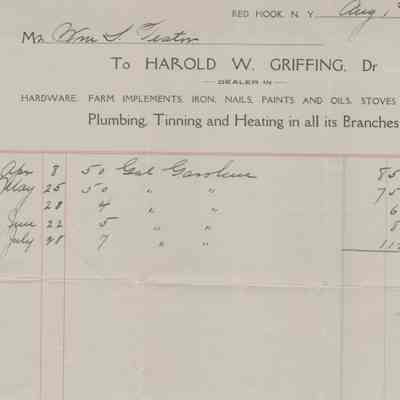 RED HOOK, N. Y. Aug
Mr. Wm S. Teator
To HAROLD W. GRIFFING, Dr
DEALER IN
HARDWARE. FARM IMPLEMENTS. IRON, NAILS, PAINTS AND OILS, STOVES
Plumbing, Tinning and Heating in all its Branches
Apr 8 50 Gal Gasoline 85
May 25 50 " " 75
28 4 " " 6
June 22 5 " " 8
July 28 7 " "